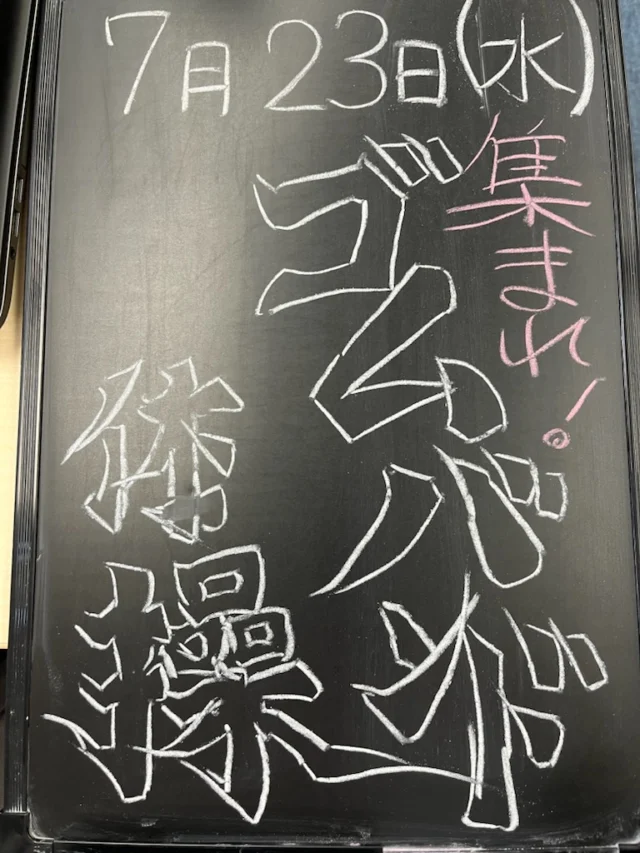 7月23日(水)
集まれ!
ゴムバンド
体操